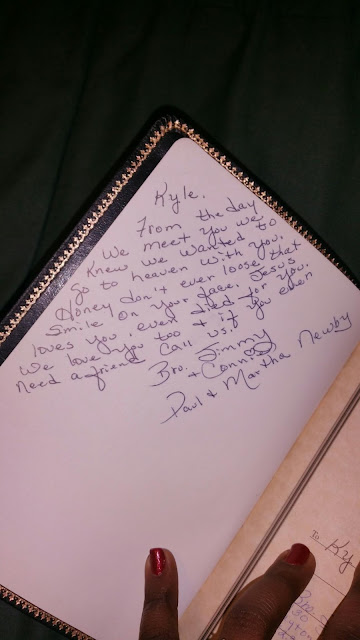 Kyle,
From the day
We meet you we
Knew we wanted to
go to heaven with you.
Honey don't ever loose that
smile on your face. Jesus
loves you, even died for you.
We love you too & if you ever
need a friend call us.
Bro. Jimmy
+ Connie
Paul & Martha Newby
To Ky